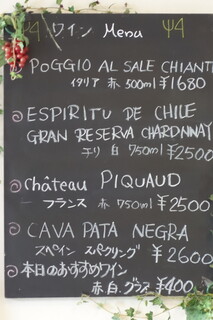 ワイン Menu
POGGIO AL SALE CHIANTI
イタリア 赤 500ml ¥1680
ESPIRITU DE CHILE
GRAN RESERVA CHARDNNAY
チリ 白 750ml ¥2500
Château PIQUAUD
フランス 赤 750ml ¥2500
CAVA PATA NEGRA
スペイン スパークリング ¥2600
本日のおすすめワイン
赤白 グラス ¥400